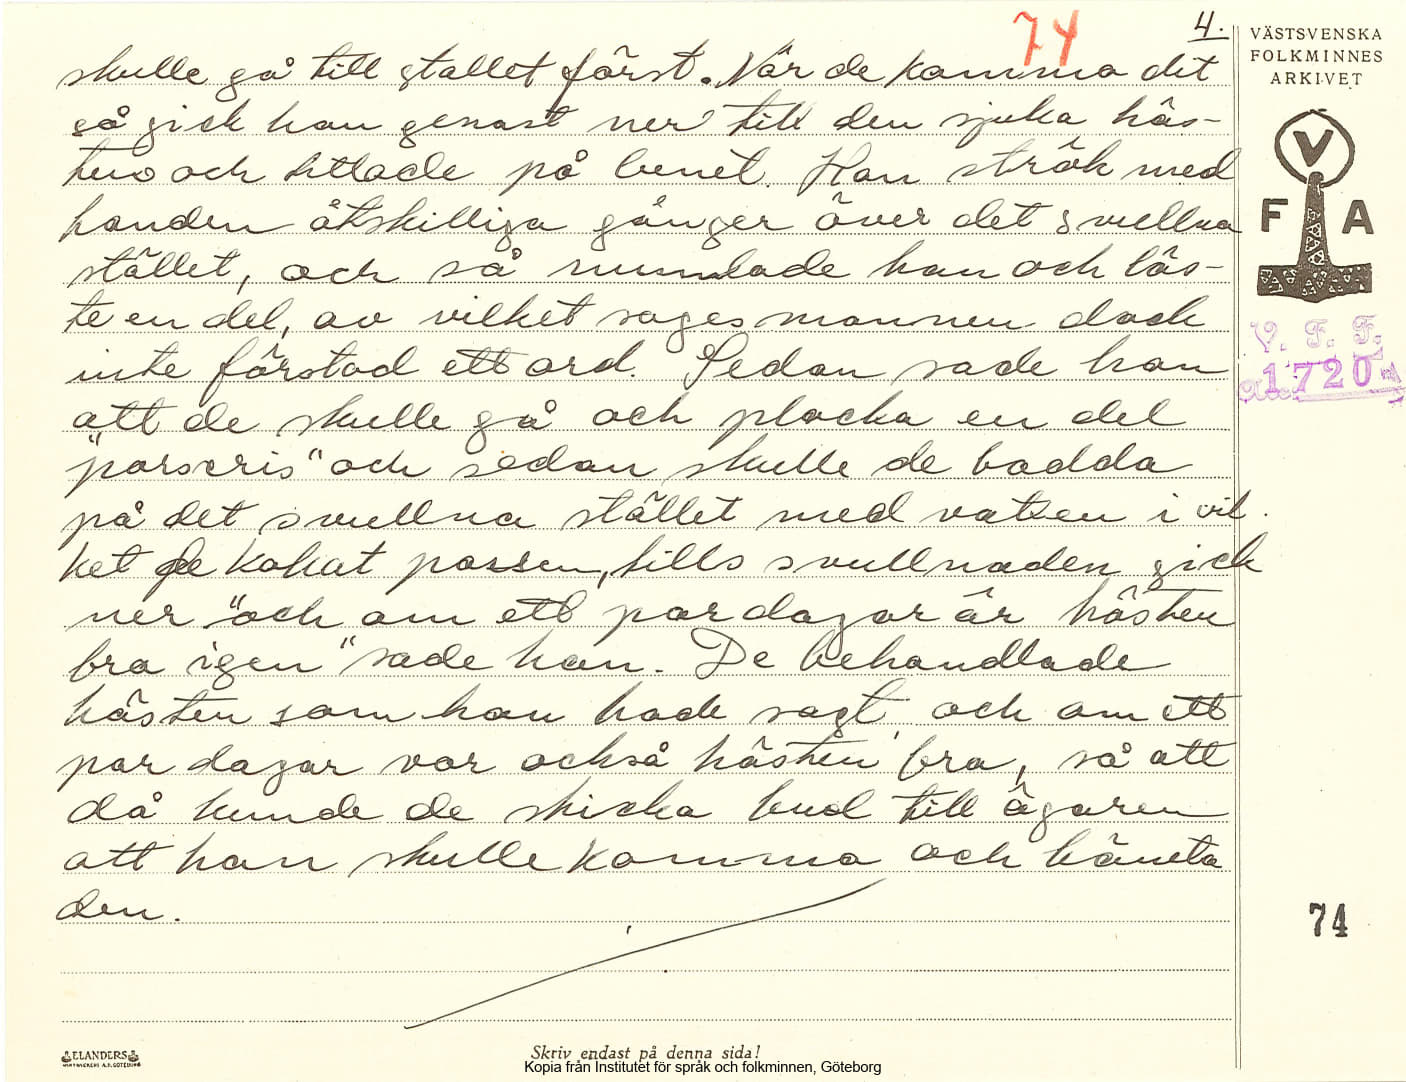 74
4.
VÄSTSVENSKA
FOLKMINNES
ARKIVET
V
F A
V. F. F.
1720
skulle gå till stallet först. När de komma dit
så gick han genast ner till den sjuka häs-
ten och tittade på benet. Han strök med
handen åtskilliga gånger över det svullna
stället, och så mumlade han och läs-
te en del, av vilket sagesmannen dock
inte förstod ett ord. Sedan sade han
att de skulle gå och plocka en del
"porscris" och sedan skulle de badda
på det svullna stället med vatten i vil-
ket de kokat porsen, tills svullnaden gick
ner "och om ett par dagar är hästen
bra igen" sade han. De behandlade
hästen som han hade sagt, och om ett
par dagar var också hästen bra, så att
då kunde de skicka bud till ägaren
att han skulle komma och hämta
den.
74
ELANDERS
Skriv endast på denna sida!
Kopia från Institutet för språk och folkminnen, Göteborg